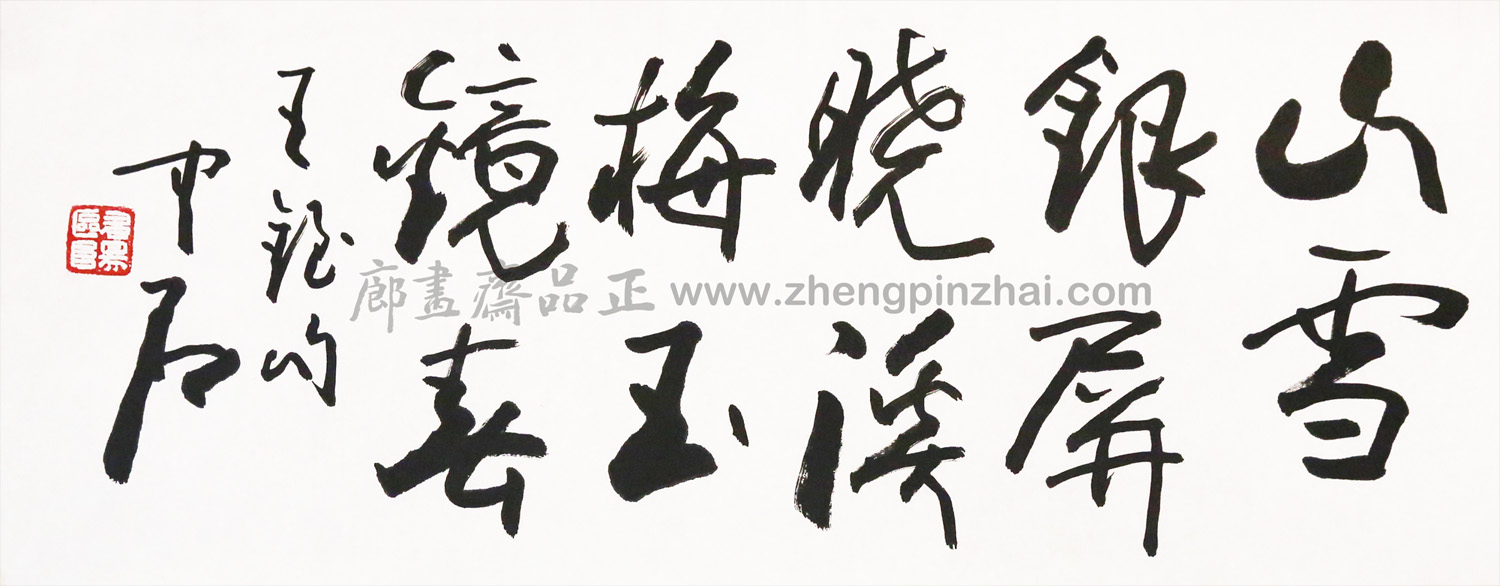 山雪
銀屏
曉溪
梅玉
鏡春
王鎡句
中石
正品齋畫廊 www.zhengpinzhai.com